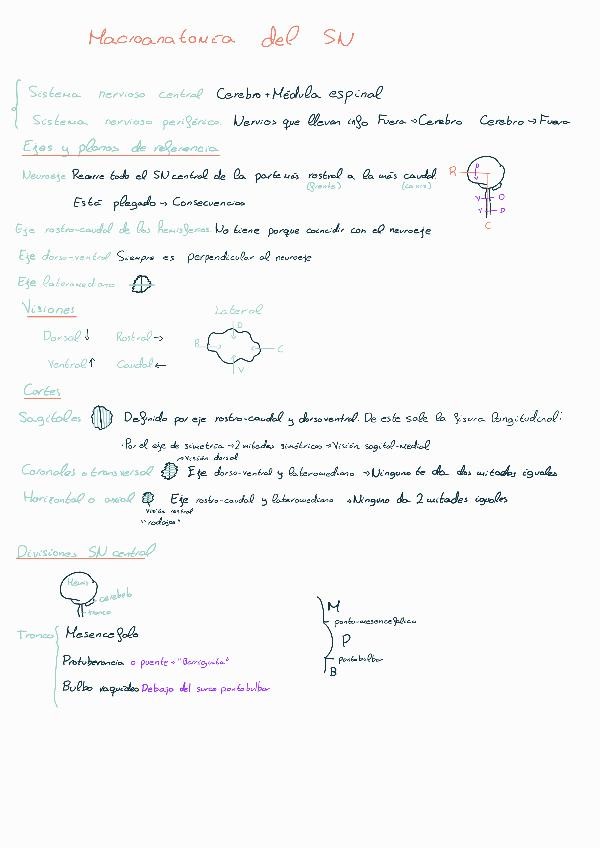 Macroanatomia del SN
Sistema nervioso central Cerebro + Médula espinal
Sistema nervioso periférico. Nervios que llevan info Fuera → Cerebro Cerebro → Fuera
Ejes y planos de referencia
Neuroeje Recorre todo el SN central de la parte más rostral a la más caudal.
(frente)
R
D
V
D
V
D
C
Está plegado → Consecuencias
Eje rostro-caudal de los hemisferios. No tiene porque coincidir con el neuroeje
Eje dorso-ventral Siempre es perpendicular al neuroeje
Eje lateromediano
Visiones
Lateral
Dorsal ↓ Rostral →
Ventral ↑ Caudal ←
D
R
C
V
Cortes
Sagitales Definido por eje rostro-caudal y dorsoventral. De este sale la fisura longitudinal:
· Por el eje de simetria → 2 mitades simétricas → Visión sagital-medial
→ Visión dorsal
Coronales o transversal Eje dorso-ventral y lateromediano → Ninguno te da dos mitades iguales
Horizontal o axial Eje rostro-caudal y lateromediano → Ninguno da 2 mitades iguales
Visión rostral
"rodajas"
Divisiones SN central
Hemis
cerebelo
tronco
Tronco
Mesencefalo
Protuberancia o puente → "Barriguita"
Bulbo raquídeo Debajo del surco pontobulbar
M
ponto-mesencefálico
P
pontobulbar
B